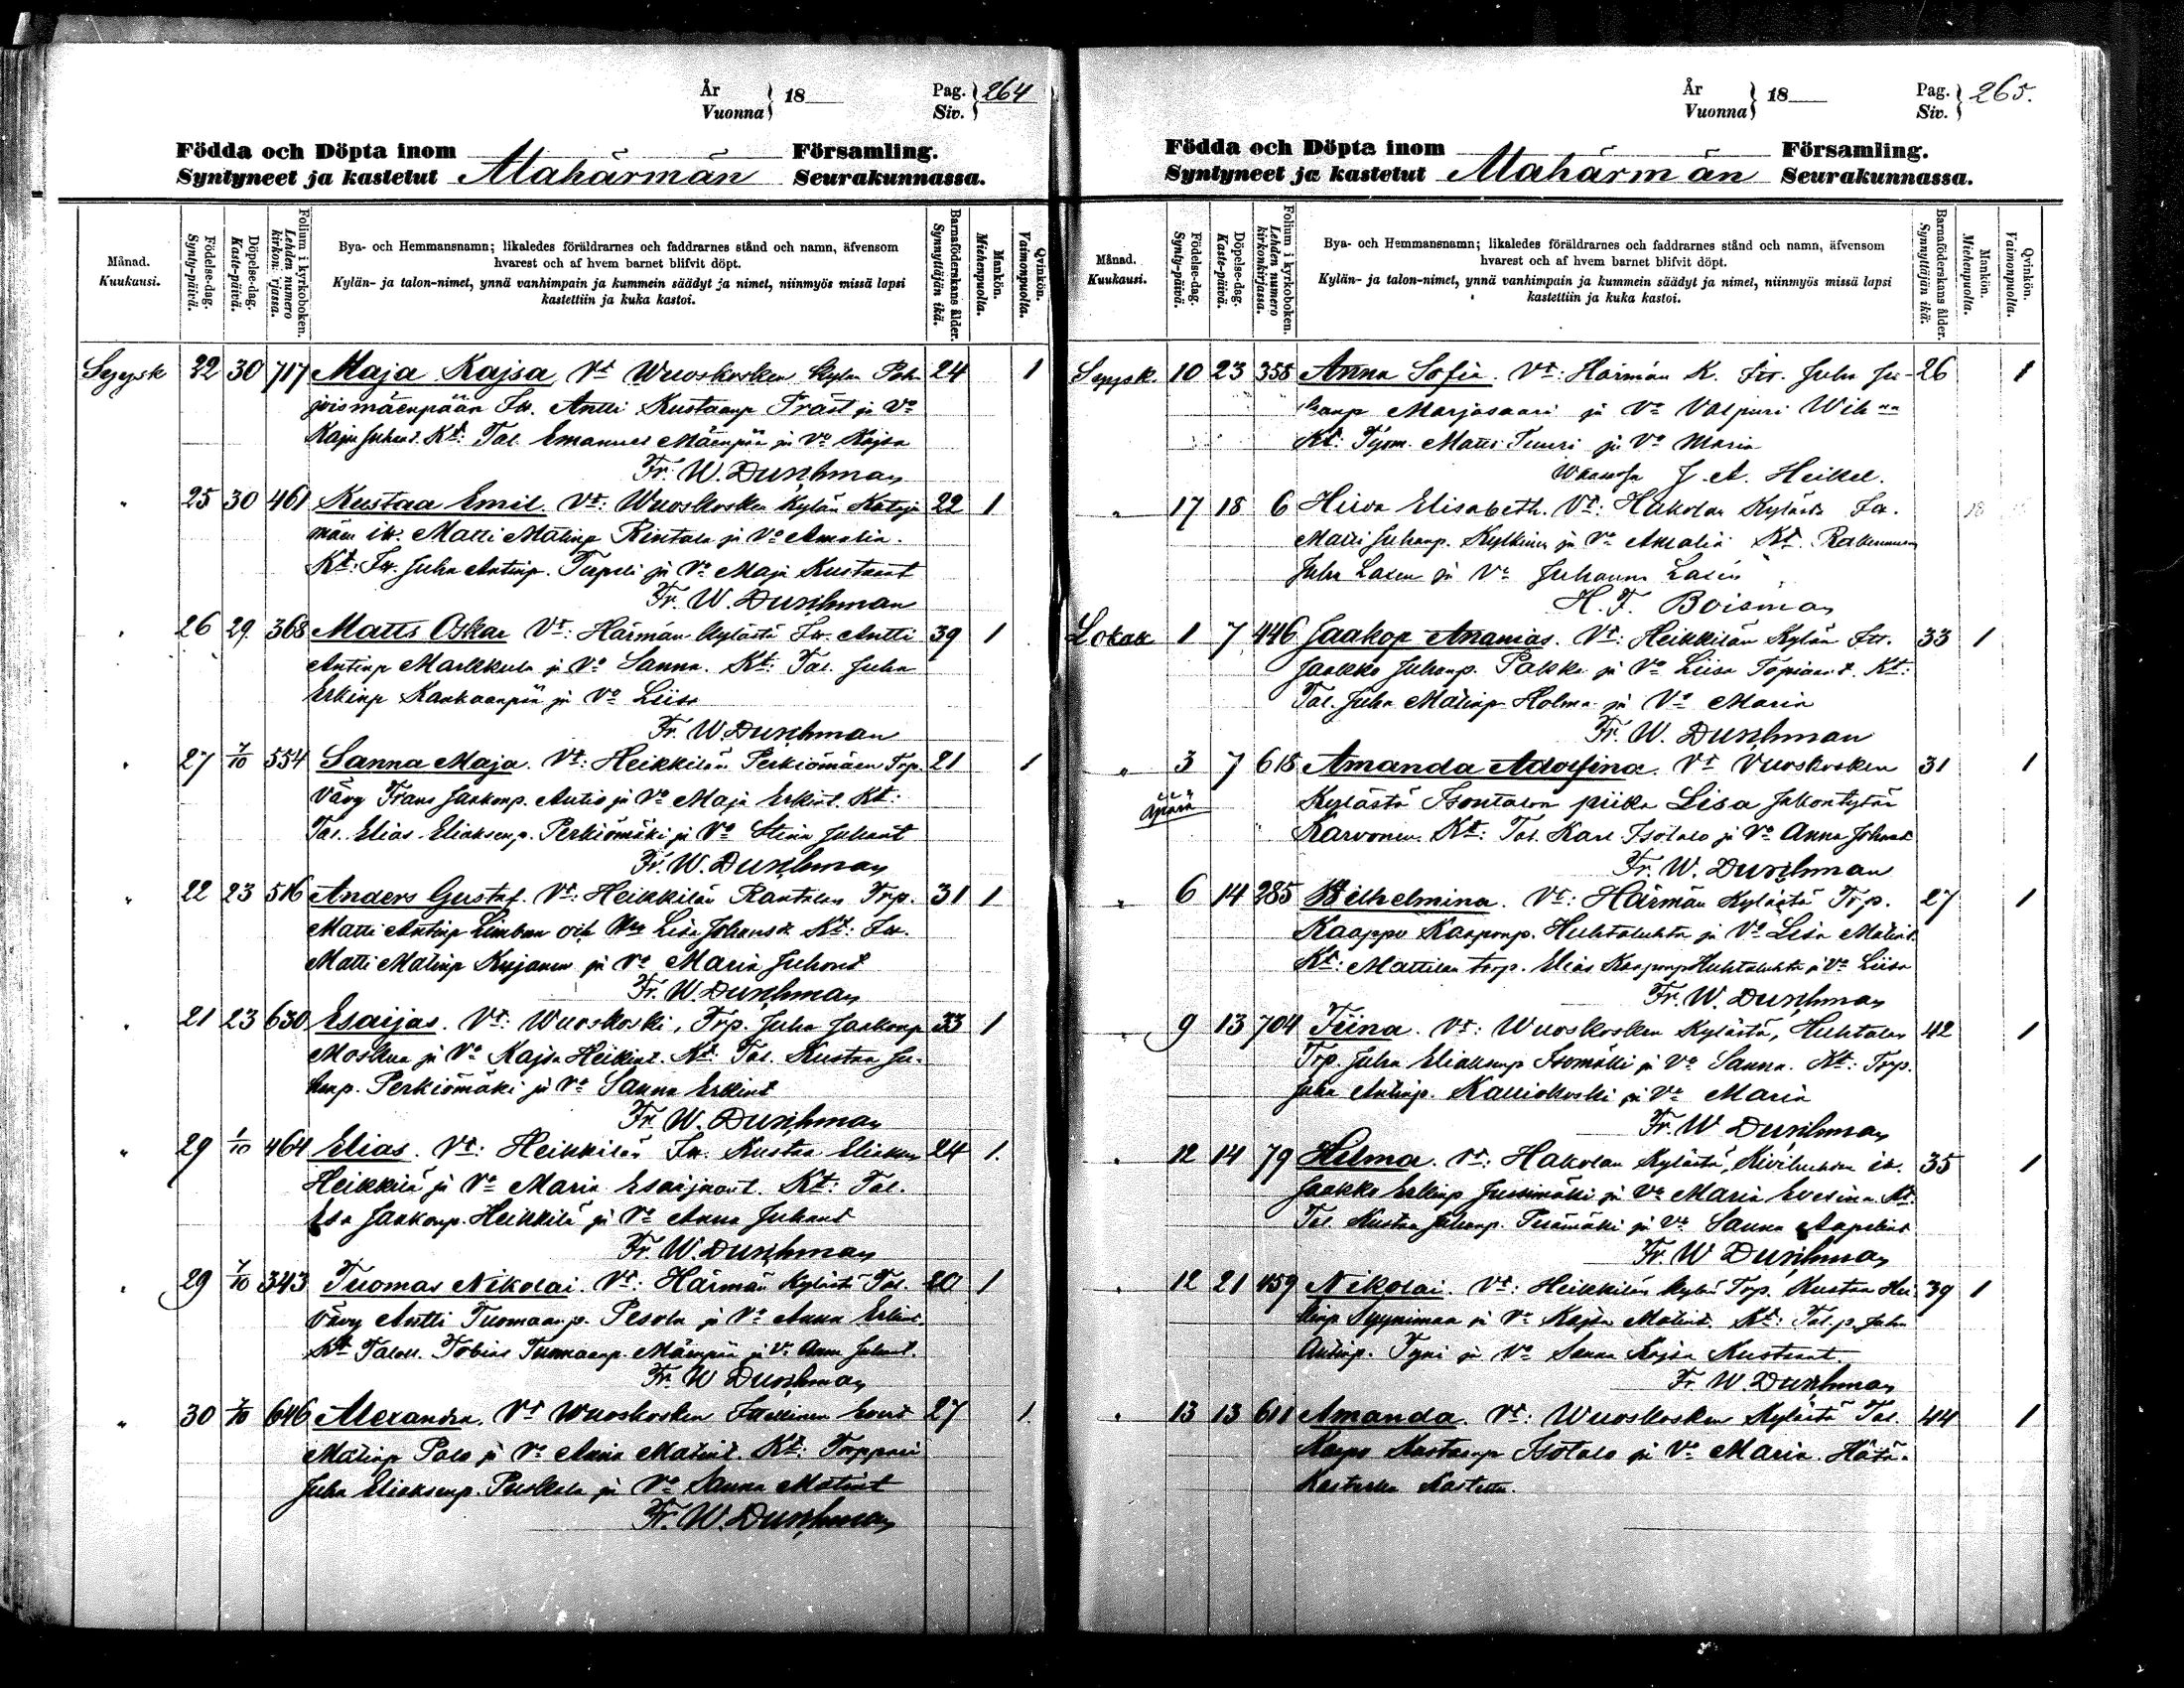 År
Vuonna } 18
Pag.
Siv. } 264
Födda och Döpta inom Församling.
Syntyneet ja kastetut Alahärmän Seurakunnassa.
Månad.
Kuukausi.
Födelse-dag.
Synty-päivä.
Döpelse-dag.
Kaste-päivä.
Folium i kyrkoboken.
Lehden numero
kirkonkirjassa.
Bya- och Hemmansnamn; likaledes föräldrarnes och faddrarnes stånd och namn, äfvensom
hvarest och af hvem barnet blifvit döpt.
Kylän- ja talon-nimet, ynnä vanhimpain ja kummein säädyt ja nimet, niinmyös missä lapsi
kastettiin ja kuka kastoi.
Barnaföderskans ålder.
Synnyttäjän ikä.
Mankön.
Miehenpuolta.
Qvinkön.
Vaimonpuolta.
Syysk 22 30 717 Maja Kajsa Vt Wuoskosken kylän 24 1
Antti Kustaanp ja Vo
Kajsa Kt: Tal. Emanuel Mäenpää ja Vo Kajsa
Fr. W. Durchman
" 25 30 461 Kustaa Emil. Vt: Wuoskosken Kylän 22 1
Matti Matinp Rintala ja Vo Amalia.
Kt: Juha Antinp. ja Vo Maja Kustaant
Fr. W. Durchman
" 26 29 368 Matts Oskar Vt: Härmän Kylästä Antti 39 1
Antinp Markkula ja Vo Sanna. Kt: Tal. Juha
Erkinp Kankaanpää ja Vo Liisa
Fr. W. Durchman
" 27 7/10 554 Sanna Maja. Vt: Heikkilän Perkiömäen Trp. 21 1
Vävy Frans Jaakonp. Autio ja Vo Maja Erkint. Kt:
Tal. Elias Eliaksenp. Perkiömäki ja Vo Stina Juhant
Fr. W. Durchman
" 22 23 516 Anders Gustaf. Vt: Heikkilän Rantalan Trp. 31 1
Matti Antinp och Lisa Johansd. Kt:
Matti Matinp ja Vo Maria Juhant
Fr. W. Durchman
" 21 23 630 Esaijas. Vt: Wuoskoski, Trp. Juha Jaakonp 33 1
Moskua ja Vo Kajsa Heikint. Kt: Tal. Kustaa Ju-
hanp. Perkiömäki ja Vo Sanna Erkint
Fr. W. Durchman
" 29 1/10 464 Elias. Vt: Heikkilän Kustaa 24 1.
Heikkilä ja Vo Maria Esaijaant. Kt: Tal.
Esa Jaakonp. Heikkilä ja Vo Anna Juhant
Fr. W. Durchman
" 29 7/10 343 Tuomas Nikolai. Vt: Härmän Kylästä Tal. 20 1
Vävy Antti Tuomaanp. Pesola ja Vo Anna Erkint.
Kt Tobias Tuomaanp. Mäenpää ja Vo Anna Juhant.
Fr. W. Durchman
" 30 7/10 646 Alexandra. Vt Wuoskosken 27 1.
Matinp Palo ja Vo Anna Matint. Kt: Torppari
Juha Eliaksenp. ja Vo Sanna Matint
Fr. W. Durchman
År
Vuonna } 18
Pag.
Siv. } 265.
Födda och Döpta inom Församling.
Syntyneet ja kastetut Alahärmän Seurakunnassa.
Månad.
Kuukausi.
Födelse-dag.
Synty-päivä.
Döpelse-dag.
Kaste-päivä.
Folium i kyrkoboken.
Lehden numero
kirkonkirjassa.
Bya- och Hemmansnamn; likaledes föräldrarnes och faddrarnes stånd och namn, äfvensom
hvarest och af hvem barnet blifvit döpt.
Kylän- ja talon-nimet, ynnä vanhimpain ja kummein säädyt ja nimet, niinmyös missä lapsi
kastettiin ja kuka kastoi.
Barnaföderskans ålder.
Synnyttäjän ikä.
Mankön.
Miehenpuolta.
Qvinkön.
Vaimonpuolta.
Syysk. 10 23 358 Anna Sofia. Vt: Härmän K. Juha Ju- 26 1
hanp Marjasaari ja Vo Valpuri
Kt: Työm. Matti Tuuri ja Vo Maria
J. A. Heikel.
" 17 18 6 Hilda Elisabeth. Vt: Hakolan Kylästä
Matti Juhanp. ja Vo Amalia Kt.
Juha Laxen ja Vo Juhanna Laxen
H. F. Boisman
Lokak 1 7 446 Jaakop Ananias. Vt: Heikkilän Kylän 33 1
Jaakko Juhanp. Pakka ja Vo Liisa Kt:
Tal. Juha Matinp Holma ja Vo Maria
Fr. W. Durchman
" 3 7 618 Amanda Adolfina. Vt Vuoskosken 31 1
Äpärä
Kylästä Isontalon piika Lisa Jakontytär
Karvonen. Kt: Tal. Karl Isotalo ja Vo Anna
Fr. W. Durchman
" 6 14 285 Wilhelmina. Vt: Härmän Kylästä Trp. 27 1
Kaappo Kaaponp. Huhtaluhta ja Vo Lisa Matint.
Kt: Mattilan torp. Elias Kaaponp Huhtaluhta ja Vo Liisa
Fr. W. Durchman
" 9 13 704 Fiina. Vt: Wuoskosken Kylästä, Huhtalan 42 1
Trp. Juha Eliaksenp Isomäki ja Vo Sanna. Kt: Trp.
Juha Antinp. Kalliokoski ja Vo Maria
Fr. W Durchman
" 12 14 79 Helma. Vt: Hakolan Kylästä, Kiviluhdan 35 1
Jaakko Erkinp Jussimäki ja Vo Maria Evelina. Kt:
Tal Kustaa Juhanp. Perämäki ja Vo Sanna Aapelint
Fr. W Durchman
" 12 21 459 Nikolai. Vt: Heikkilän Kylän Trp. Kustaa Hei- 39 1
kinp Syynimaa ja Vo Kajsa Matint. Kt: Tal. p. Juha
Antinp. Tyni ja Vo Sanna Kajsa Kustaant.
Fr. W. Durchman
" 13 13 611 Amanda. Vt: Wuoskosken Kylästä Tal. 44 1
Kustaanp Isotalo ja Vo Maria. Hätä-
Kasteella Kastettu.